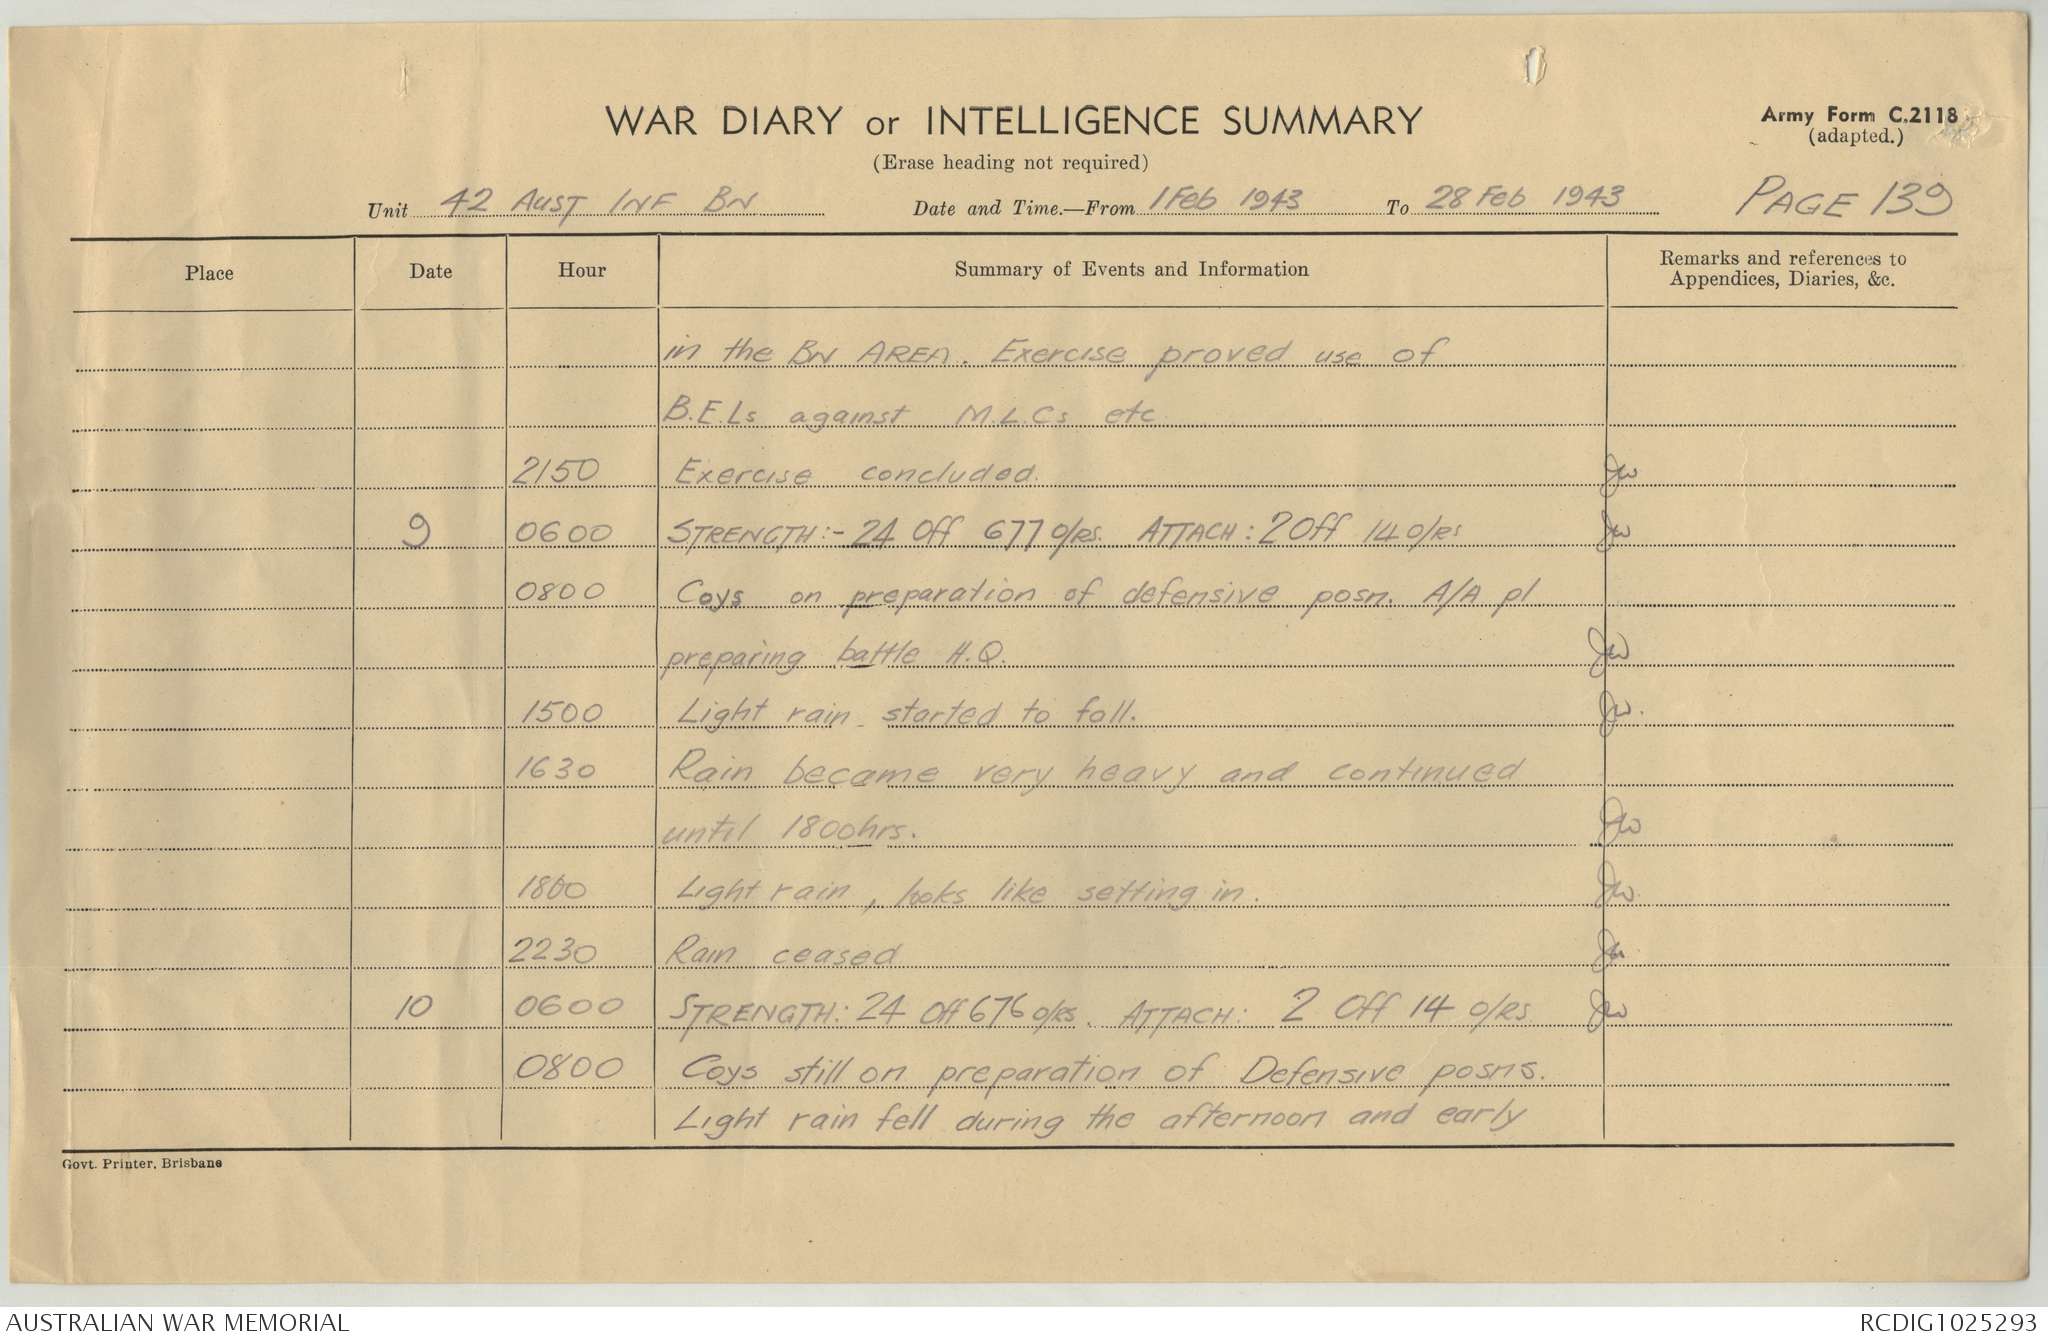 WAR DIARY or INTELLIGENCE SUMMARY
Army Form C.2118
(adapted.)
(Erase heading not required)
Unit 42 AUST INF BN Date and Time.—From 1 Feb 1943 To 28 Feb 1943 PAGE 139
Place Date Hour Summary of Events and Information Remarks and references to
Appendices, Diaries, &c.
in the BN AREA. Exercise proved use of
B.E.Ls against M.L.Cs etc
2150 Exercise concluded. JW
9 0600 STRENGTH:- 24 Off 677 O/RS. ATTACH: 2 Off 14 O/RS JW
0800 Coys on preparation of defensive posn. A/A pl
preparing battle H.Q. JW
1500 Light rain started to fall. JW.
1630 Rain became very heavy and continued
until 1800hrs. JW
1800 Light rain, looks like setting in. JW.
2230 Rain ceased JW
10 0600 STRENGTH: 24 Off 676 O/RS. ATTACH: 2 Off 14 O/RS JW
0800 Coys still on preparation of Defensive posns.
Light rain fell during the afternoon and early
Govt. Printer, Brisbane
AUSTRALIAN WAR MEMORIAL RCDIG1025293